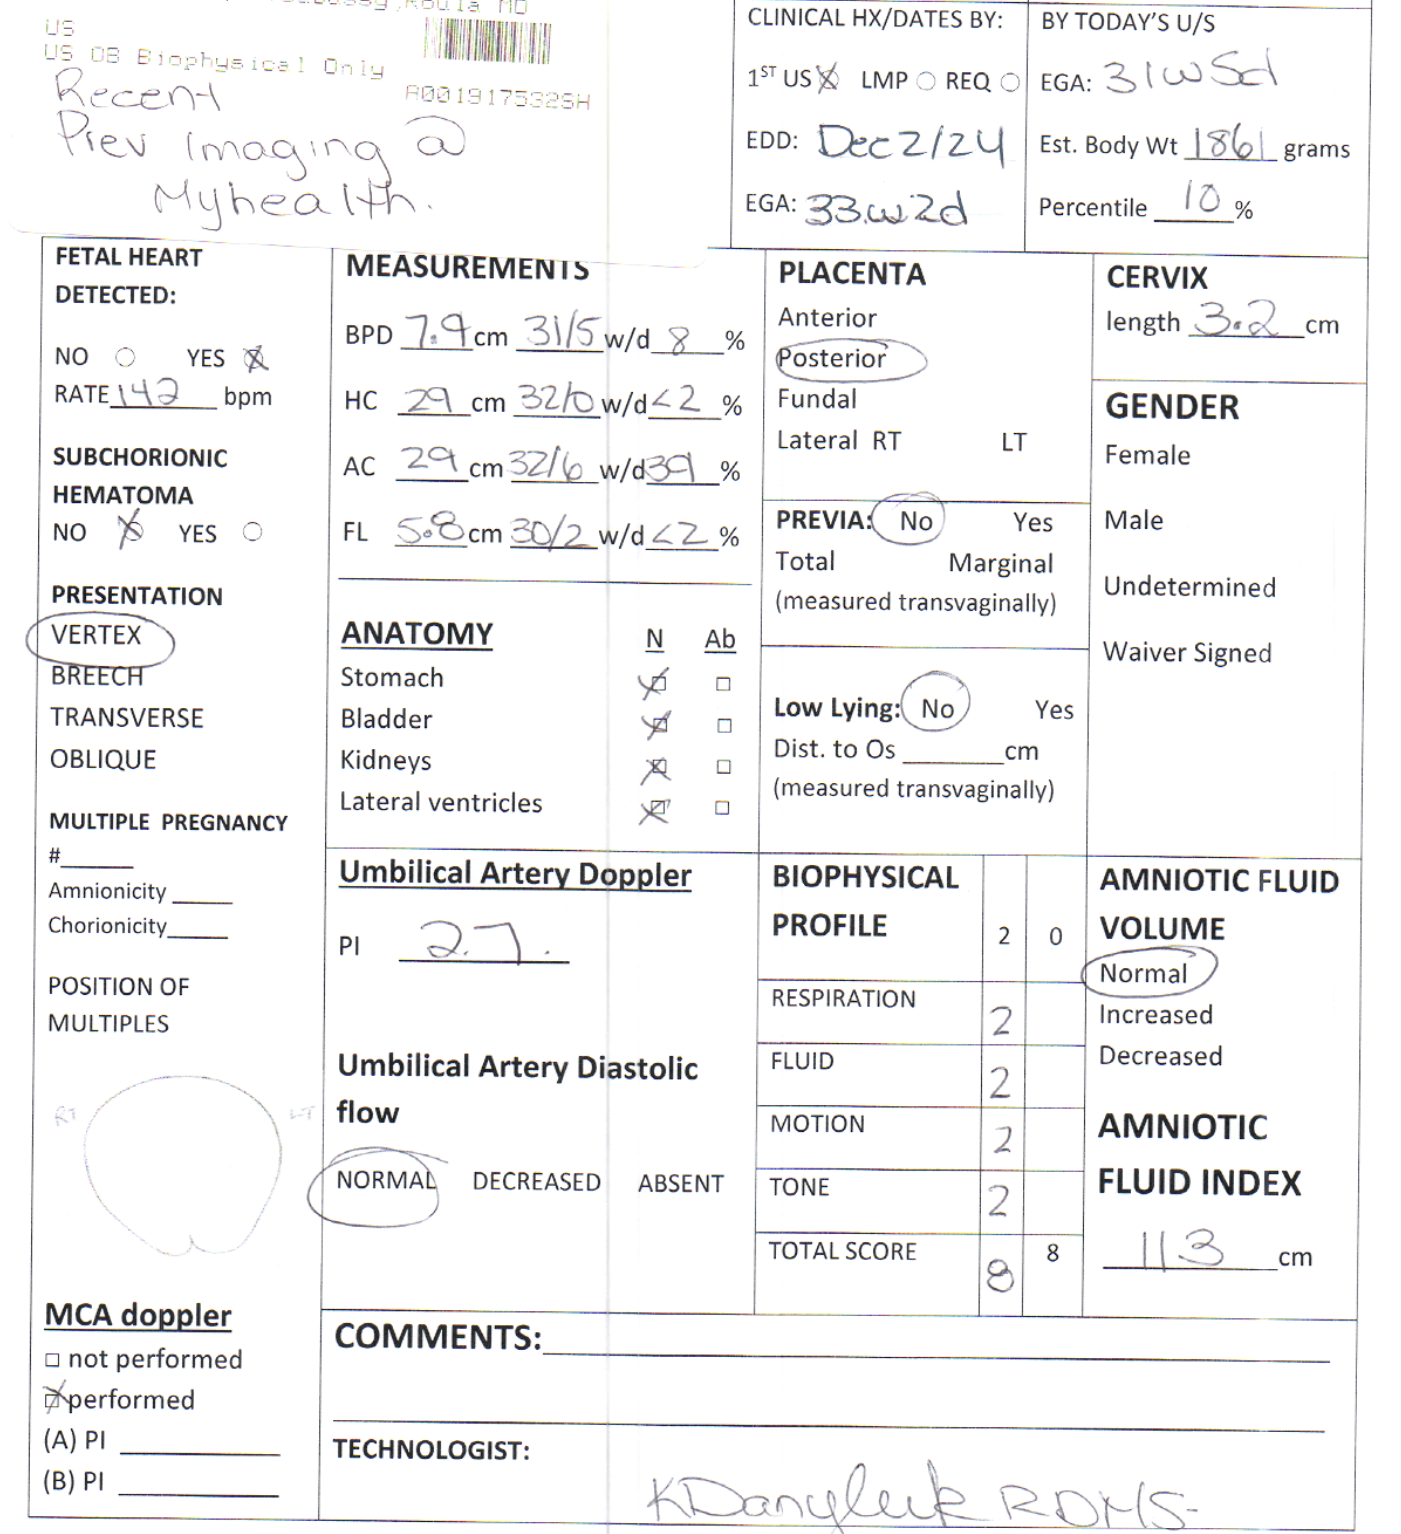 Roula MD
US
US OB Biophysical Only
A0019175325H
Recent
Prev Imaging @
Myhealth.
CLINICAL HX/DATES BY:
1ST US LMP REQ
EDD: Dec 2/24
EGA: 33w2d
BY TODAY'S U/S
EGA: 31w5d
Est. Body Wt 1861 grams
Percentile 10 %
FETAL HEART
DETECTED:
NO YES
RATE 142 bpm
SUBCHORIONIC
HEMATOMA
NO YES
PRESENTATION
VERTEX
BREECH
TRANSVERSE
OBLIQUE
MULTIPLE PREGNANCY
#
Amnionicity
Chorionicity
POSITION OF
MULTIPLES
RT LT
MCA doppler
not performed
performed
(A) PI
(B) PI
MEASUREMENTS
BPD 7.9 cm 31/5 w/d 8 %
HC 29 cm 32/0 w/d <2 %
AC 29 cm 32/6 w/d 39 %
FL 5.8 cm 30/2 w/d <2 %
ANATOMY N Ab
Stomach
Bladder
Kidneys
Lateral ventricles
Umbilical Artery Doppler
PI 2.7.
Umbilical Artery Diastolic
flow
NORMAL DECREASED ABSENT
PLACENTA
Anterior
Posterior
Fundal
Lateral RT LT
PREVIA: No Yes
Total Marginal
(measured transvaginally)
Low Lying: No Yes
Dist. to Os cm
(measured transvaginally)
CERVIX
length 3.2 cm
GENDER
Female
Male
Undetermined
Waiver Signed
BIOPHYSICAL
PROFILE 2 0
RESPIRATION 2
FLUID 2
MOTION 2
TONE 2
TOTAL SCORE 8 8
AMNIOTIC FLUID
VOLUME
Normal
Increased
Decreased
AMNIOTIC
FLUID INDEX
113 cm
COMMENTS:
TECHNOLOGIST:
KDanyluk RDMS